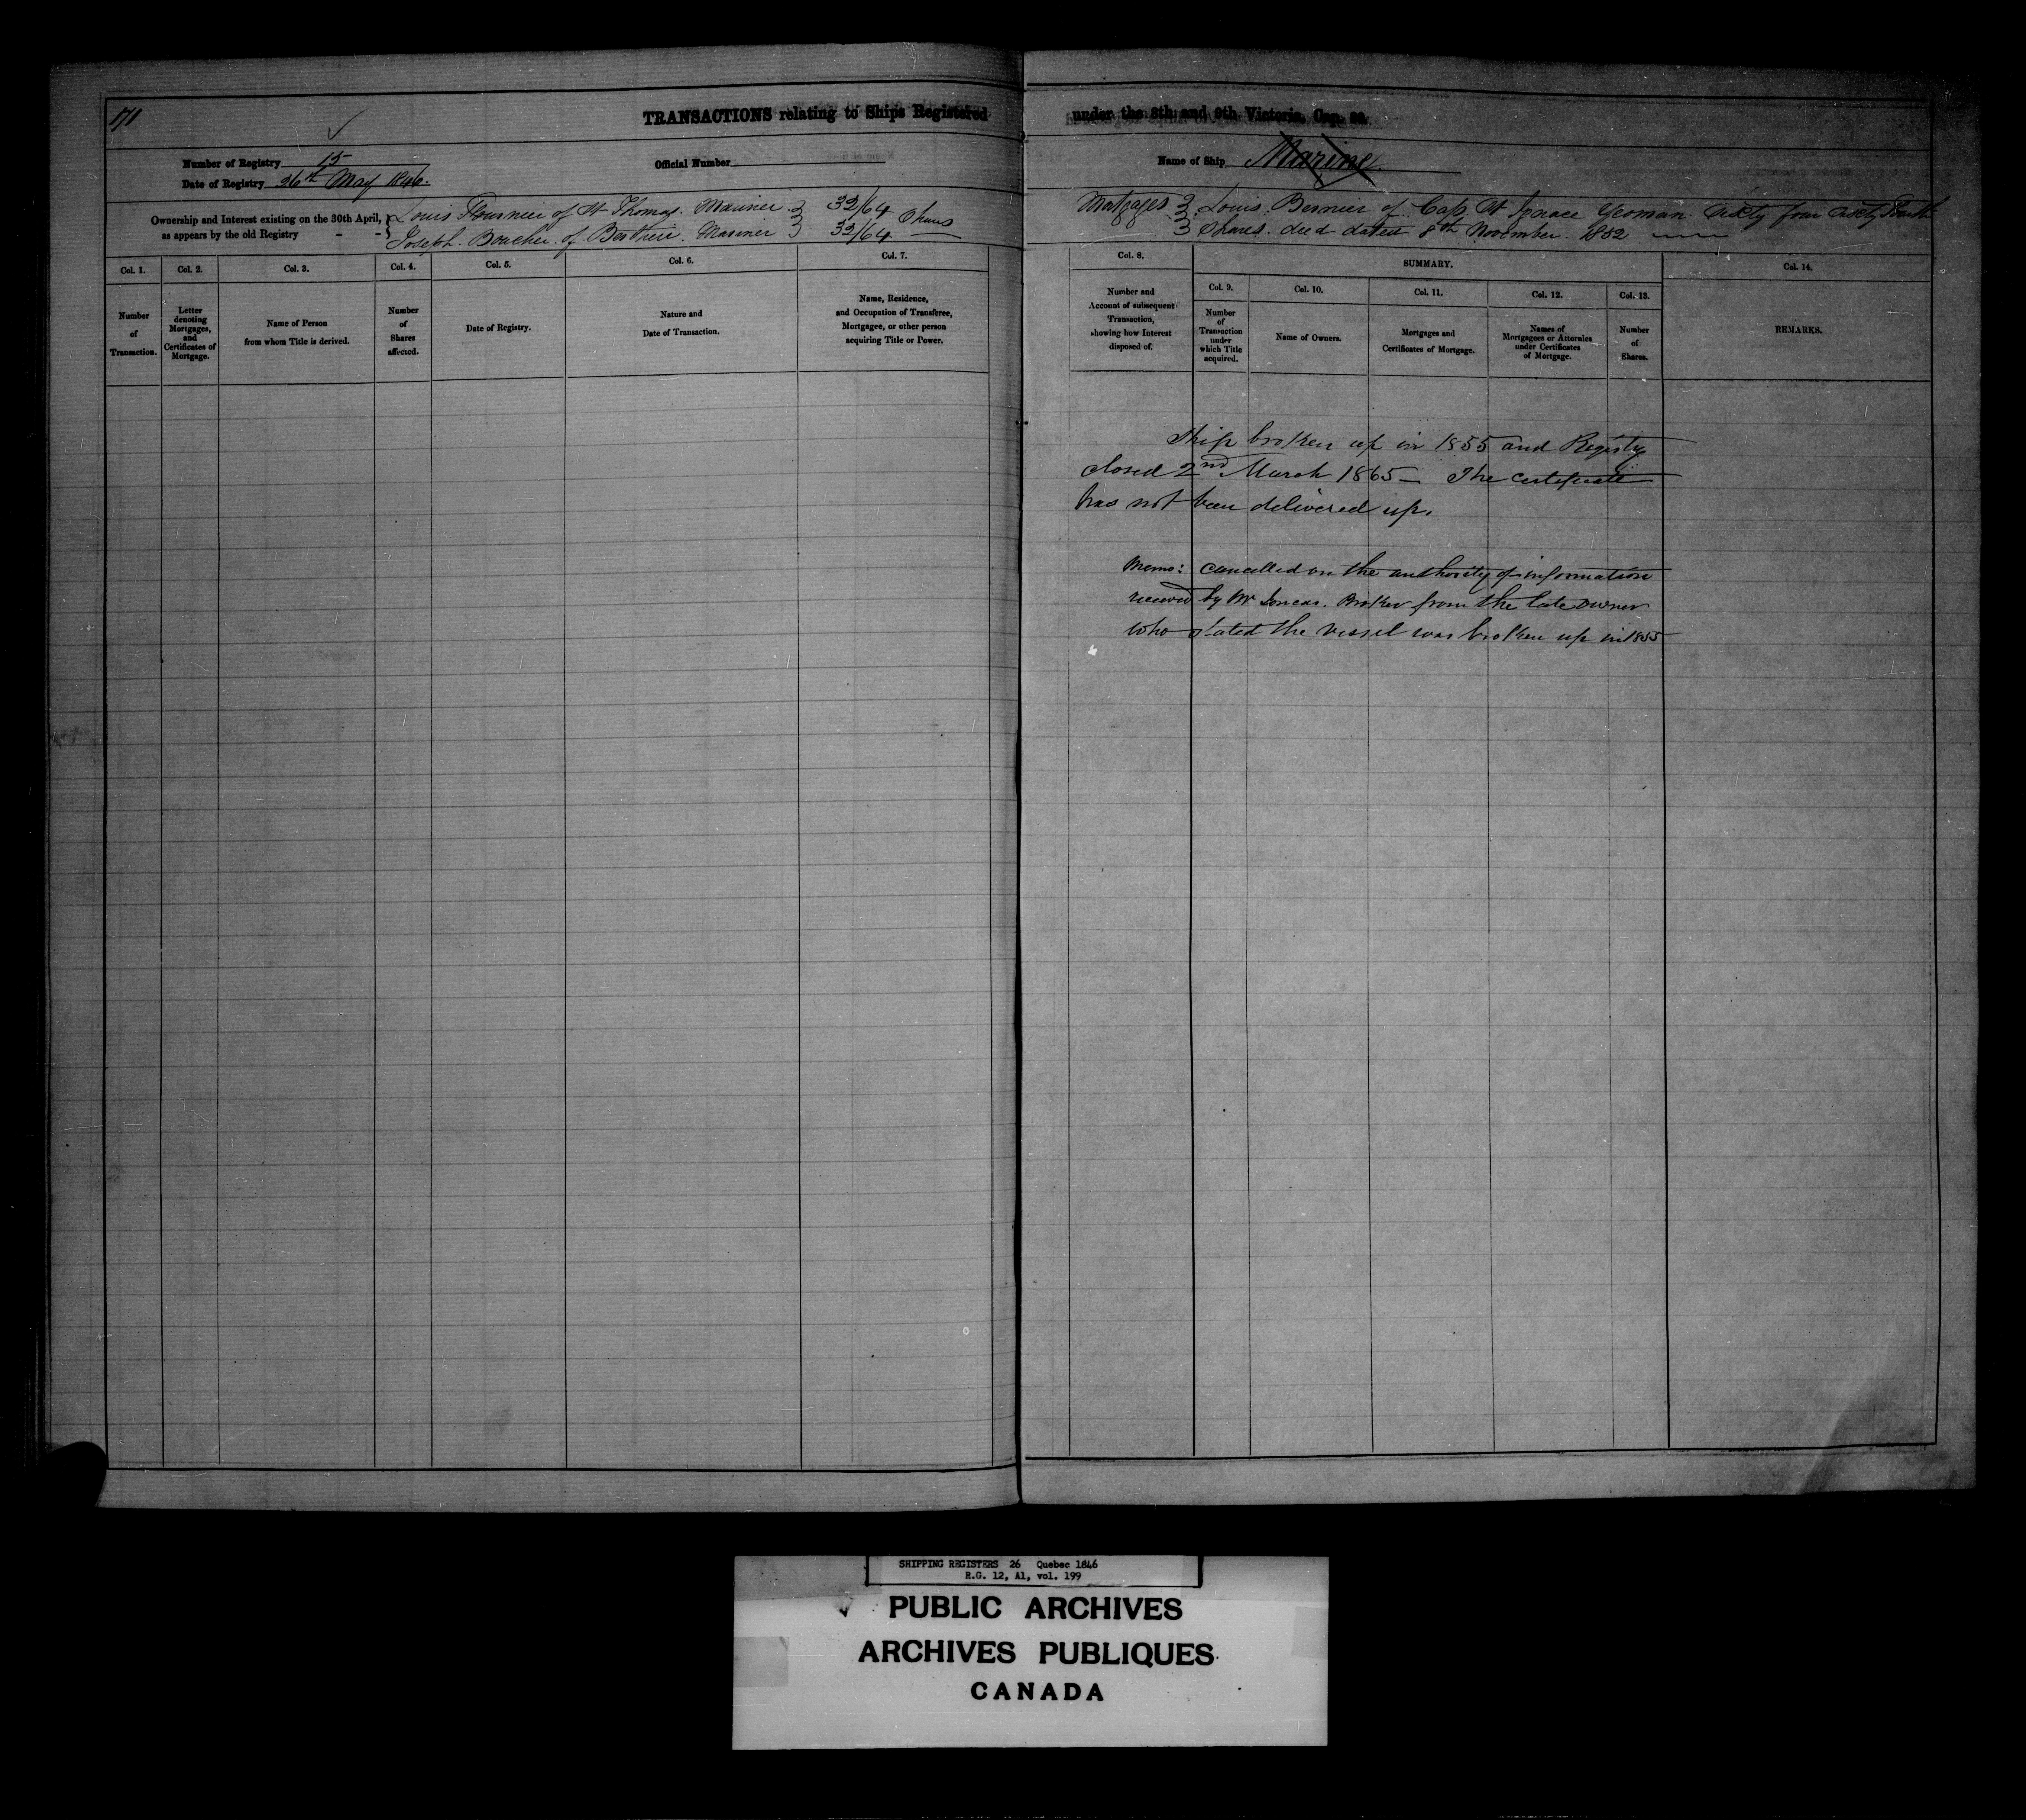 171
TRANSACTIONS relating to Ships Registered under the 8th and 9th Victoria, Cap. 89.
Number of Registry 15
Official Number
Name of Ship Marine
Date of Registry 26th May 1846.
Ownership and Interest existing on the 30th April, as appears by the old Registry - -
Louis Fournier of St Thomas. Mariner 32/64
Joseph Boucher of Berthier. Mariner 32/64 Shares
Mortgages Louis Bernier of Cap St Ignace Yeoman Sixty four Sixty fourth
Shares. deed dated 8th November. 1852
Col. 1.
Number
of
Transaction.
Col. 2.
Letter
denoting
Mortgages,
and
Certificates of
Mortgage.
Col. 3.
Name of Person
from whom Title is derived.
Col. 4.
Number
of
Shares
affected.
Col. 5.
Date of Registry.
Col. 6.
Nature and
Date of Transaction.
Col. 7.
Name, Residence,
and Occupation of Transferee,
Mortgagee, or other person
acquiring Title or Power.
Col. 8.
Number and
Account of subsequent
Transaction,
showing how Interest
disposed of.
SUMMARY.
Col. 9.
Number
of
Transaction
under
which Title
acquired.
Col. 10.
Name of Owners.
Col. 11.
Mortgages and
Certificates of Mortgage.
Col. 12.
Names of
Mortgagees or Attornies
under Certificates
of Mortgage.
Col. 13.
Number
of
Shares.
Col. 14.
REMARKS.
Ship broken up in 1855 and Registry
closed 2nd March 1865 — The certificate
has not been delivered up.
Memo: cancelled on the authority of information
received by Mr Broker from the late owner
who stated the vessel was broken up in 1855
SHIPPING REGISTERS 26 Quebec 1846
R.G. 12, A1, vol. 199
PUBLIC ARCHIVES
ARCHIVES PUBLIQUES
CANADA